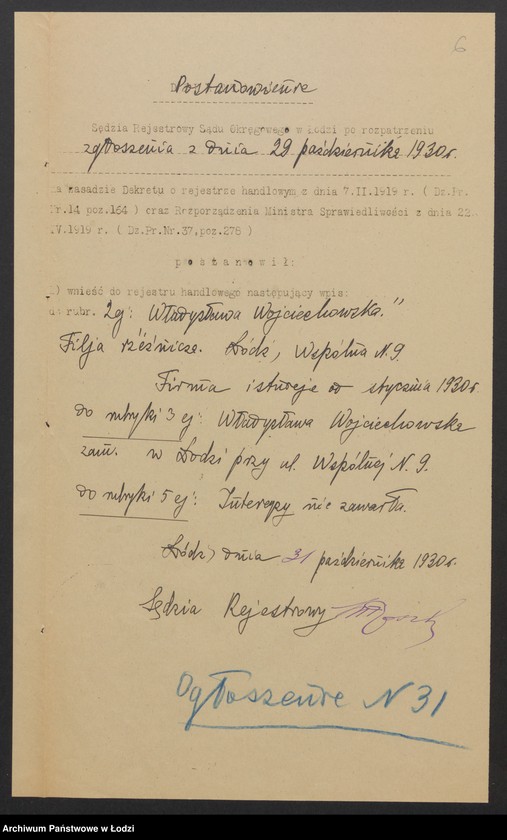 6
Postanowienie
Sędzia Rejestrowy Sądu Okręgowego w Łodzi po rozpatrzeniu
zgłoszenia z dnia 29 października 1930r.
na zasadzie Dekretu o rejestrze handlowym z dnia 7.II.1919 r. ( Dz.Pr.
Nr.14 poz.164 ) oraz Rozporządzenia Ministra Sprawiedliwości z dnia 22.
IV.1919 r. ( Dz.Pr.Nr.37,poz.276 )
p o s t a n o w i ł:
) wnieść do rejestru handlowego następujący wpis:
do rubr. 2ej: Władysława Wojciechowska."
Filja rzeźnicza. Łódź, Wspólna N. 9
Firma istnieje od stycznia 1930r.
do rubryki 3 ej: Władysława Wojciechowska
zam. w Łodzi przy ul. Wspólnej N. 9.
do rubryki 5 ej: Intercyzy nie zawarła.
Łódź, dnia 31 października 1930r.
Sędzia Rejestrowy
Ogłoszenie N 31
Archiwum Państwowe w Łodzi